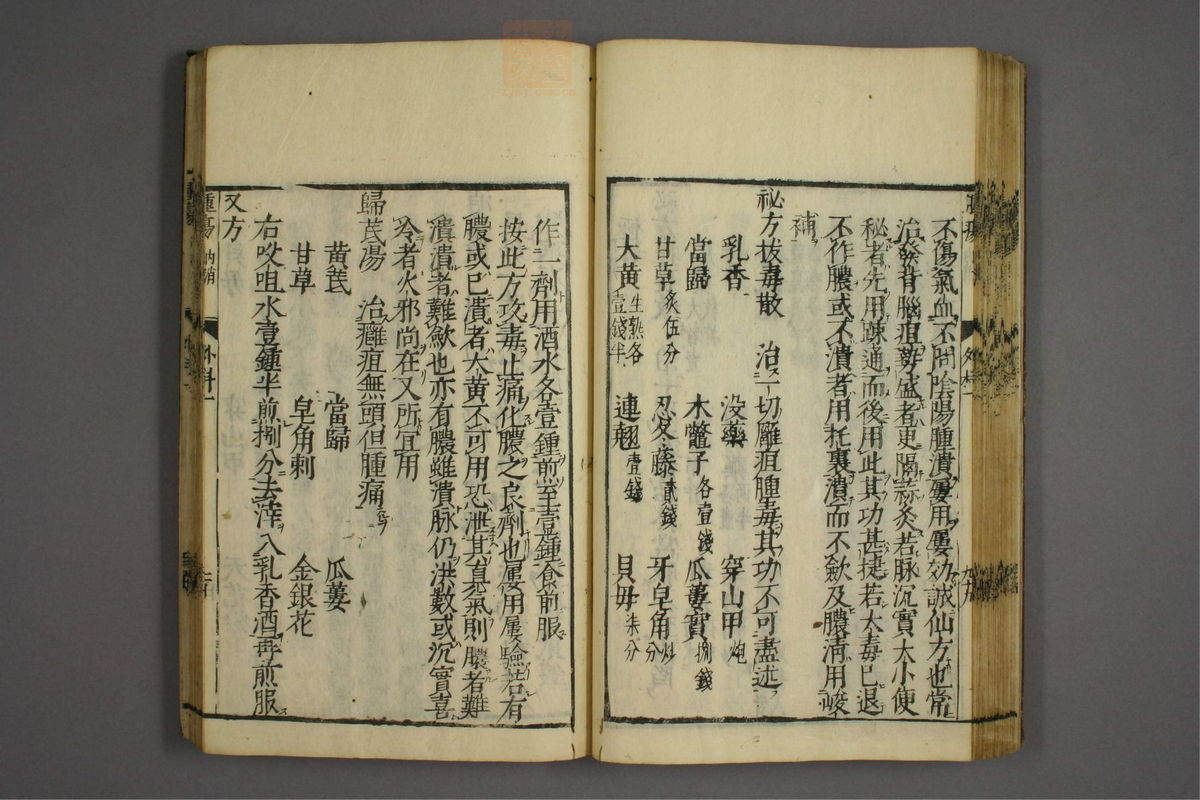 不傷氣血不問陰陽腫潰屢用屢効誠仙方也常
治發背腦疽勢盛者更隔蒜灸若脉沉實大小便
秘者先用疎通而後用此其功甚㨗若大毒已退
不作膿或不潰者用托裏潰而不歛及膿清用峻
補
祕方拔毒散　治一切癰疽腫毒其功不可盡述
乳香　没藥　穿山甲炮
當歸　木鼈子各壹錢　瓜蔞實捌錢
甘草炙伍分　忍冬藤貳錢　牙皂角炒分
大黄生熟各壹錢半　連翹壹錢　貝母分
作一劑用酒水各壹鍾煎至壹鍾食前服
按此方攻毒止痛化膿之良劑也屢用屢驗若有
膿或已潰者大黄不可用恐泄其眞氣則膿者難
潰潰者難歛也亦有膿雖潰脉仍洪數或沉實喜
冷者火邪尚在又所宜用
歸芪湯　治癰疽無頭但腫痛
黄芪　當歸　瓜蔞
甘草　皂角刺　金銀花
右㕮咀水壹鍾半煎捌分去滓入乳香酒再煎服
又方
外科一